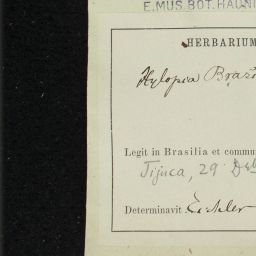 E.MUS.BOT.HAUNI
HERBARIUM
Xylopia Brazi
Legit in Brasilia et commu
Tijuca, 29
Determinavit Eichler